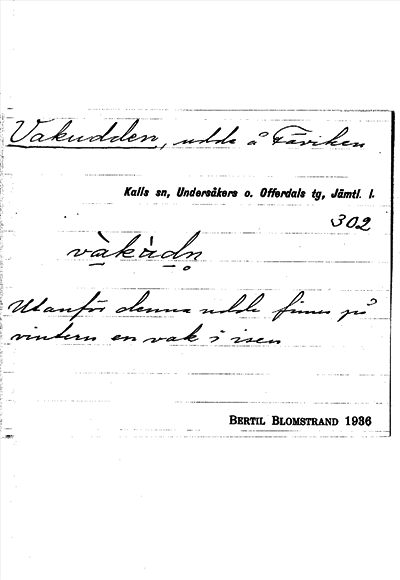 Vakudden, udde å Täviken
Kalls sn, Undersåkers o. Offerdals tg, Jämtl. l.
302
vàkàdn̥
Utanför denna udde finns på
vintern en vak i isen
BERTIL BLOMSTRAND 1936